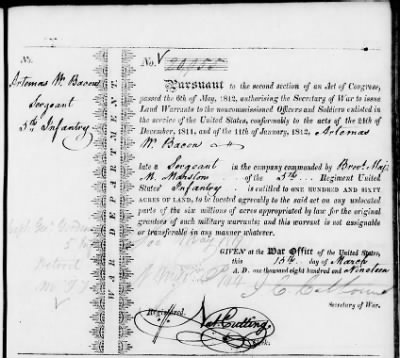 No.
Artemas W. Bacon
Sergeant
5th Infantry
WAR DEPARTMENT.
No.
Pursuant to the second section of an Act of Congress,
passed the 6th of May, 1812, authorising the Secretary of War to issue
Land Warrants to the noncommissioned Officers and Soldiers enlisted in
the service of the United States, conformably to the acts of the 24th of
December, 1811, and of the 11th of January, 1812, Artemas
W. Bacon
late a Sergeant in the company commanded by Brevt. Maj.
M. Marston of the 5th Regiment United
States' Infantry is entitled to ONE HUNDRED AND SIXTY
ACRES OF LAND, to be located agreeably to the said act on any unlocated
parts of the six millions of acres appropriated by law for the original
grantees of such military warrants; and this warrant is not assignable
or transferable in any manner whatever.
GIVEN at the War Office of the United States,
this 15th day of March
A. D. one thousand eight hundred and Nineteen
J. C. Calhoun
Secretary of War.
Registered.
Nat. Cutting.
Clerk.
Detroit